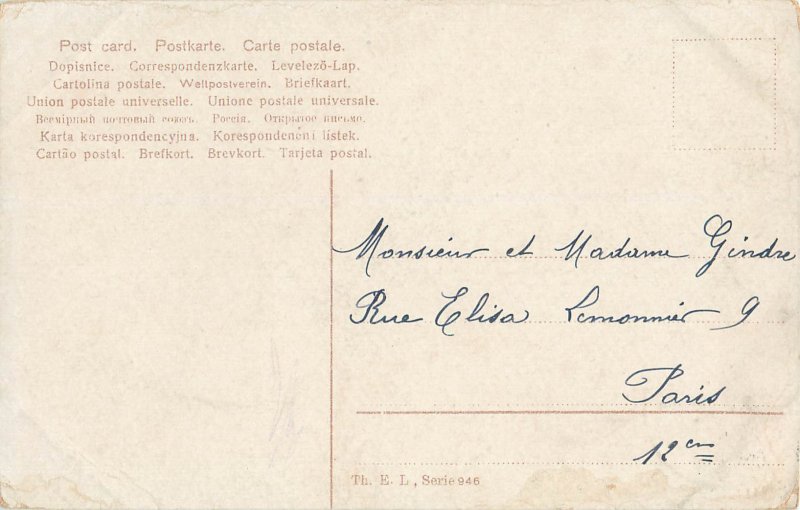 Post card. Postkarte. Carte postale.
Dopisnice. Correspondenzkarte. Levelező-Lap.
Cartolina postale. Weltpostverein. Briefkaart.
Union postale universelle. Unione postale universale.
Всемірный почтовый союзъ. Россія. Открытое письмо.
Karta korespondencyjna. Korespondenčni listek.
Cartão postal. Brefkort. Brevkort. Tarjeta postal.
Monsieur et Madame Gindre
Rue Elisa Lemonnier 9
Paris
12em
Th. E. L., Serie 946